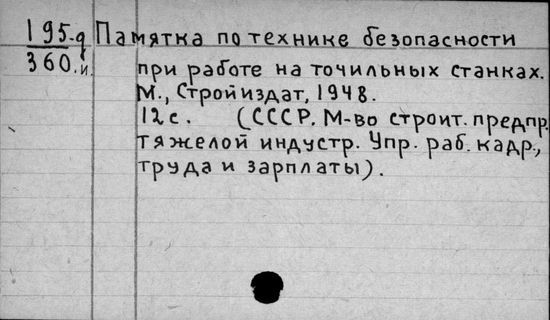 195-д Памятка по технике безопасности
360.и. при работе на точильных станках.
М., Стройиздат, 1948.
12с. (СССР. М-во строит. предпр.
тяжелой индустр. Упр. раб. кадр.,
труда и зарплаты).